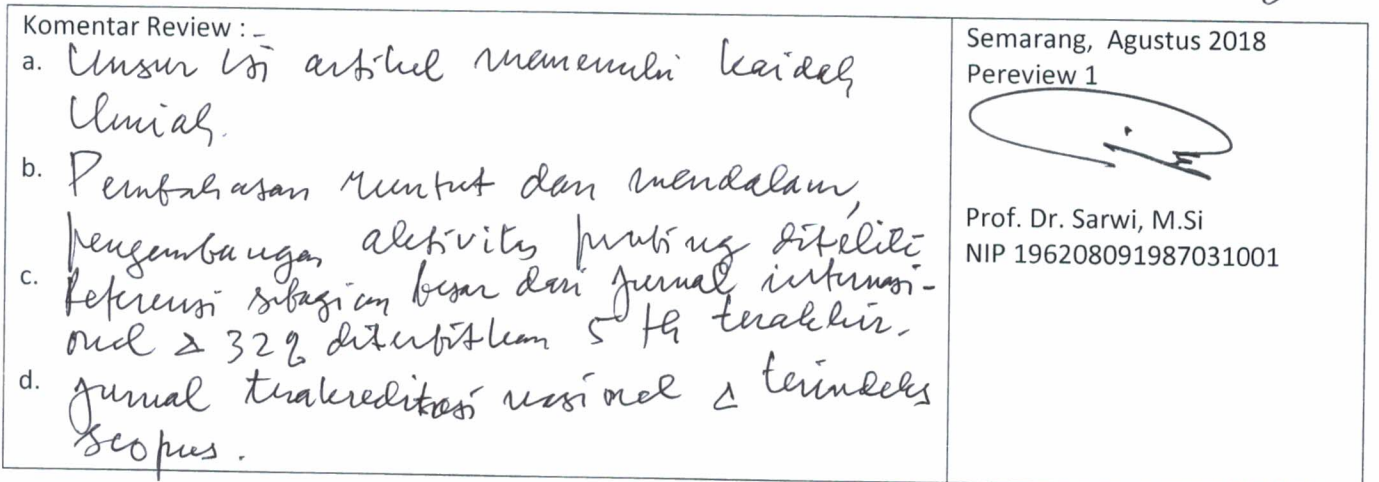 Komentar Review : -
a. Unsur isi artikel memenuhi kaidah
Ilmiah.
b. Pembahasan runtut dan mendalam,
pengembangan aktivitas penting diteliti
c. Referensi sebagian besar dari jurnal internasi-
onal & 32% diterbitkan 5 th terakhir.
d. Jurnal terakreditasi nasional & terindeks
scopus.
Semarang, Agustus 2018
Pereview 1
Prof. Dr. Sarwi, M.Si
NIP 196208091987031001